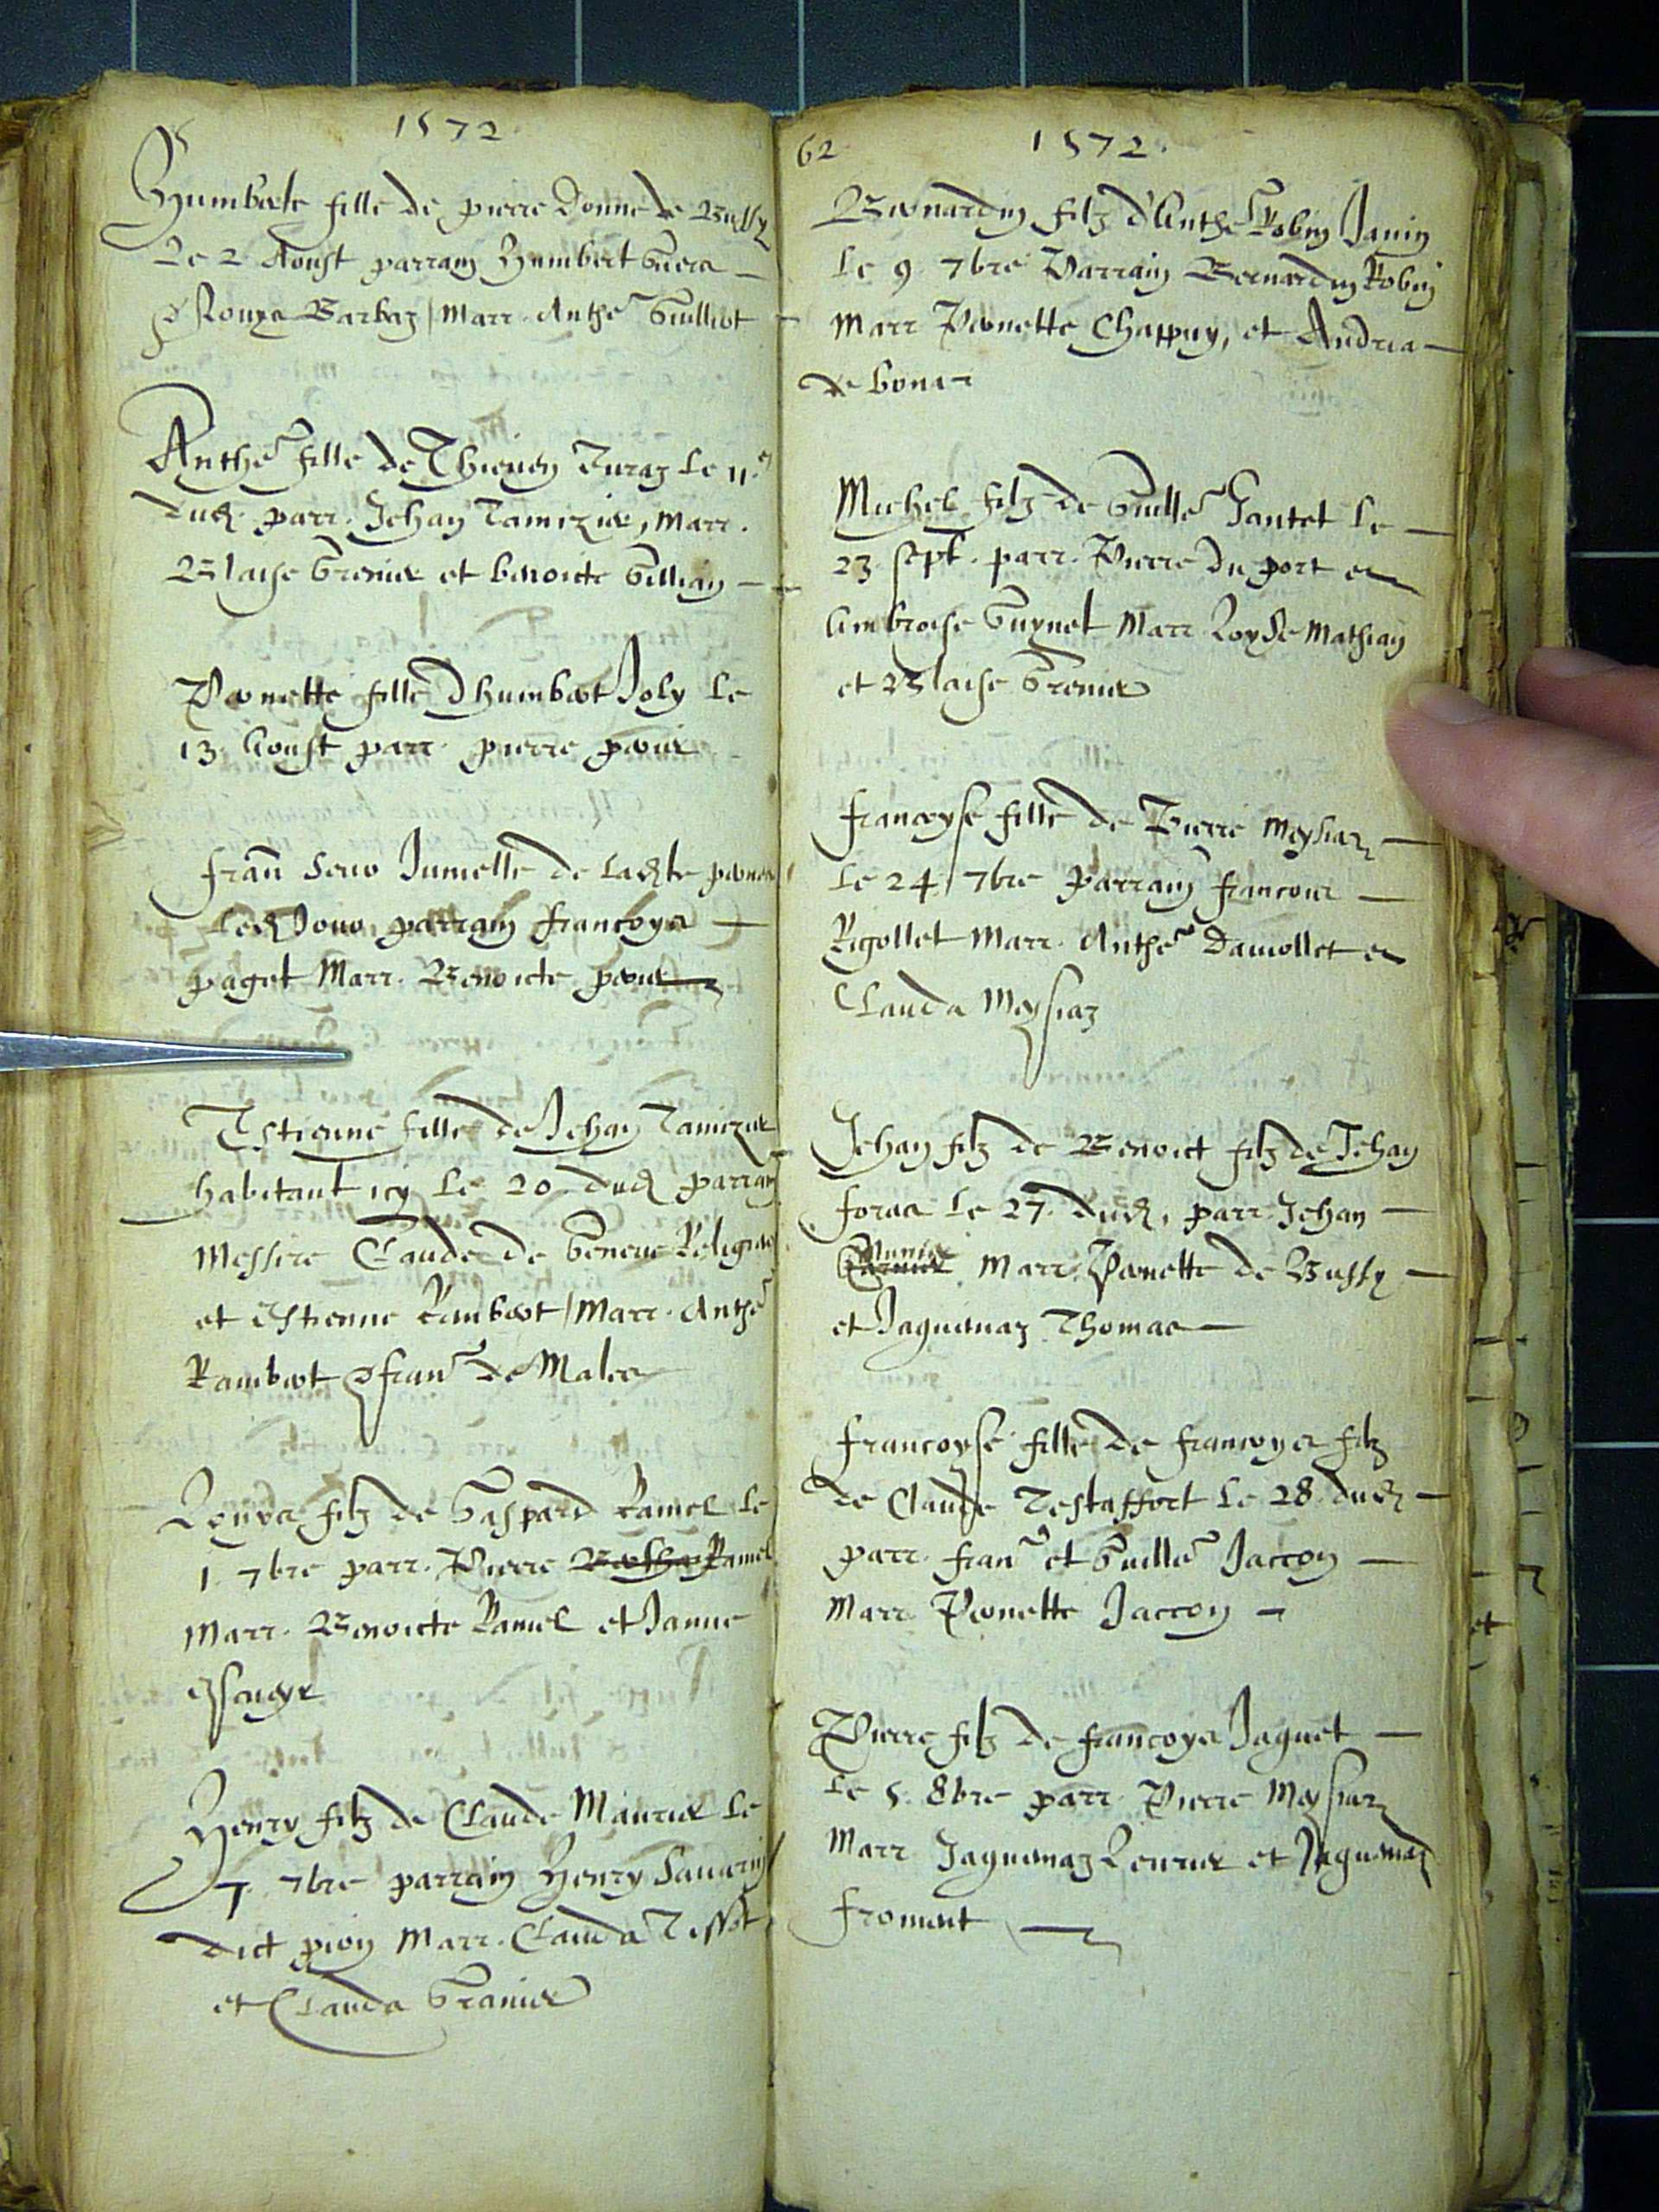 1572
Humberte fille de pierre Donne de Bussy
Le 2 Aoust parrain Humbert
& Louys Barbaz / Marr. Anthe Guilliot
Anthe fille de Thieven Turaz le 11e
dud. parr. Jehan Tamizier, Marr.
Blaise Grenier et benoicte Gillian
Pernette fille dhumbert Joly le
13 Aoust parr. pierre perier
fran seur Jumelle de ladicte pernette
led Jour parrain francoys
paget Marr. Benoicte perier
Estienne fille de Jehan Tamizier
habitant icy le 20 dud parrain
Messire Claude de Geneve Religieux
et Estienne Rambert / Marr. Anthe
Rambert & fran de Males
Louys filz de Gaspard Ramel le
1 7bre parr. Pierre Ramel
Marr. Benoicte Ramel et Janne
Henry filz de Claude Maurier le
7 7bre parrain Henry Savarin
dict pion Marr. Clauda Tissot
et Clauda Granier
62 1572
Bernardin filz d'Anthe Robin Janin
le 9 7bre Parrain Bernardin Robin
Marr Pernette Chappuy, et Andrea
de bona
Michel filz de Guille Gantet le
23 sept. parr. Pierre du port et
Ambroise Guynet Marr. Loyse Mathian
et Blaise Grenier
francoyse fille de Pierre Meysiaz
le 24 7bre parrain francoys
Rigollet Marr. Anthe Davollet et
Clauda Meysiaz
Jehan filz de Benoict filz de Jehan
foraz le 27 dud, parr. Jehan
Munier Marr. Pernette de Bussy
et Jaquemaz Thomas
francoyse fille de francoys filz
de Claude Testaffort le 28 dud
parr. fran et Guille Jarcon
Marr. Pernette Jarcon
Pierre filz de francoys Jaquet
le 5 8bre parr. Pierre Meysiaz
Marr Jaquemaz et Jaquemaz
froment